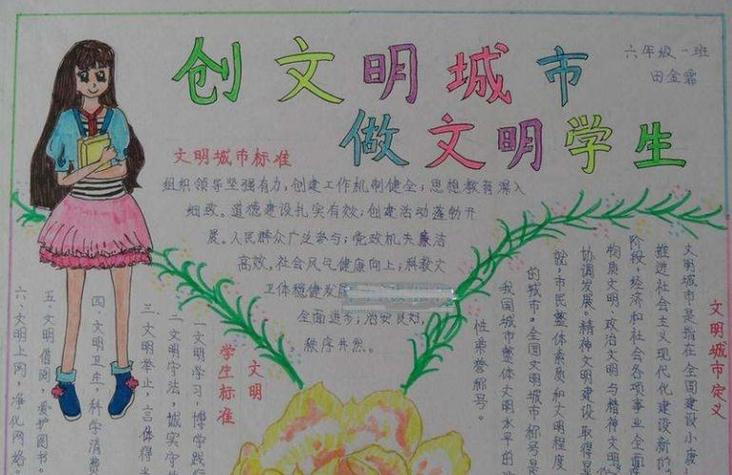 创文明城市
做文明学生
六年级一班
田金霜
文明城市标准
组织领导坚强有力,创建工作机制健全;思想教育深入
细致。道德建设扎实有效;创建活动蓬勃开
展。人民群众广泛参与;党政机关廉洁
高效。社会风气健康向上;科教文
卫体稳健发展
全面进步;治安良好,
秩序井然。
文明城市定义
文明城市,是指在全国建设小康
推进社会主义现代化建设新的
阶段,经济和社会各项事业全面
物质文明、政治文明与精神文明
协调发展。精神文明建设取得显
就,市民整体素质和文明程度
的城市。全国文明城市称号是
我国城市整体文明水平的
性荣誉称号。
文明
学生标准
一文明学习,博学践行
二文明守法,诚实守
三、文明举止,言体得
四、文明卫生,科学消费
五、文明借阅,爱护图书。
六、文明上网,净化网络。